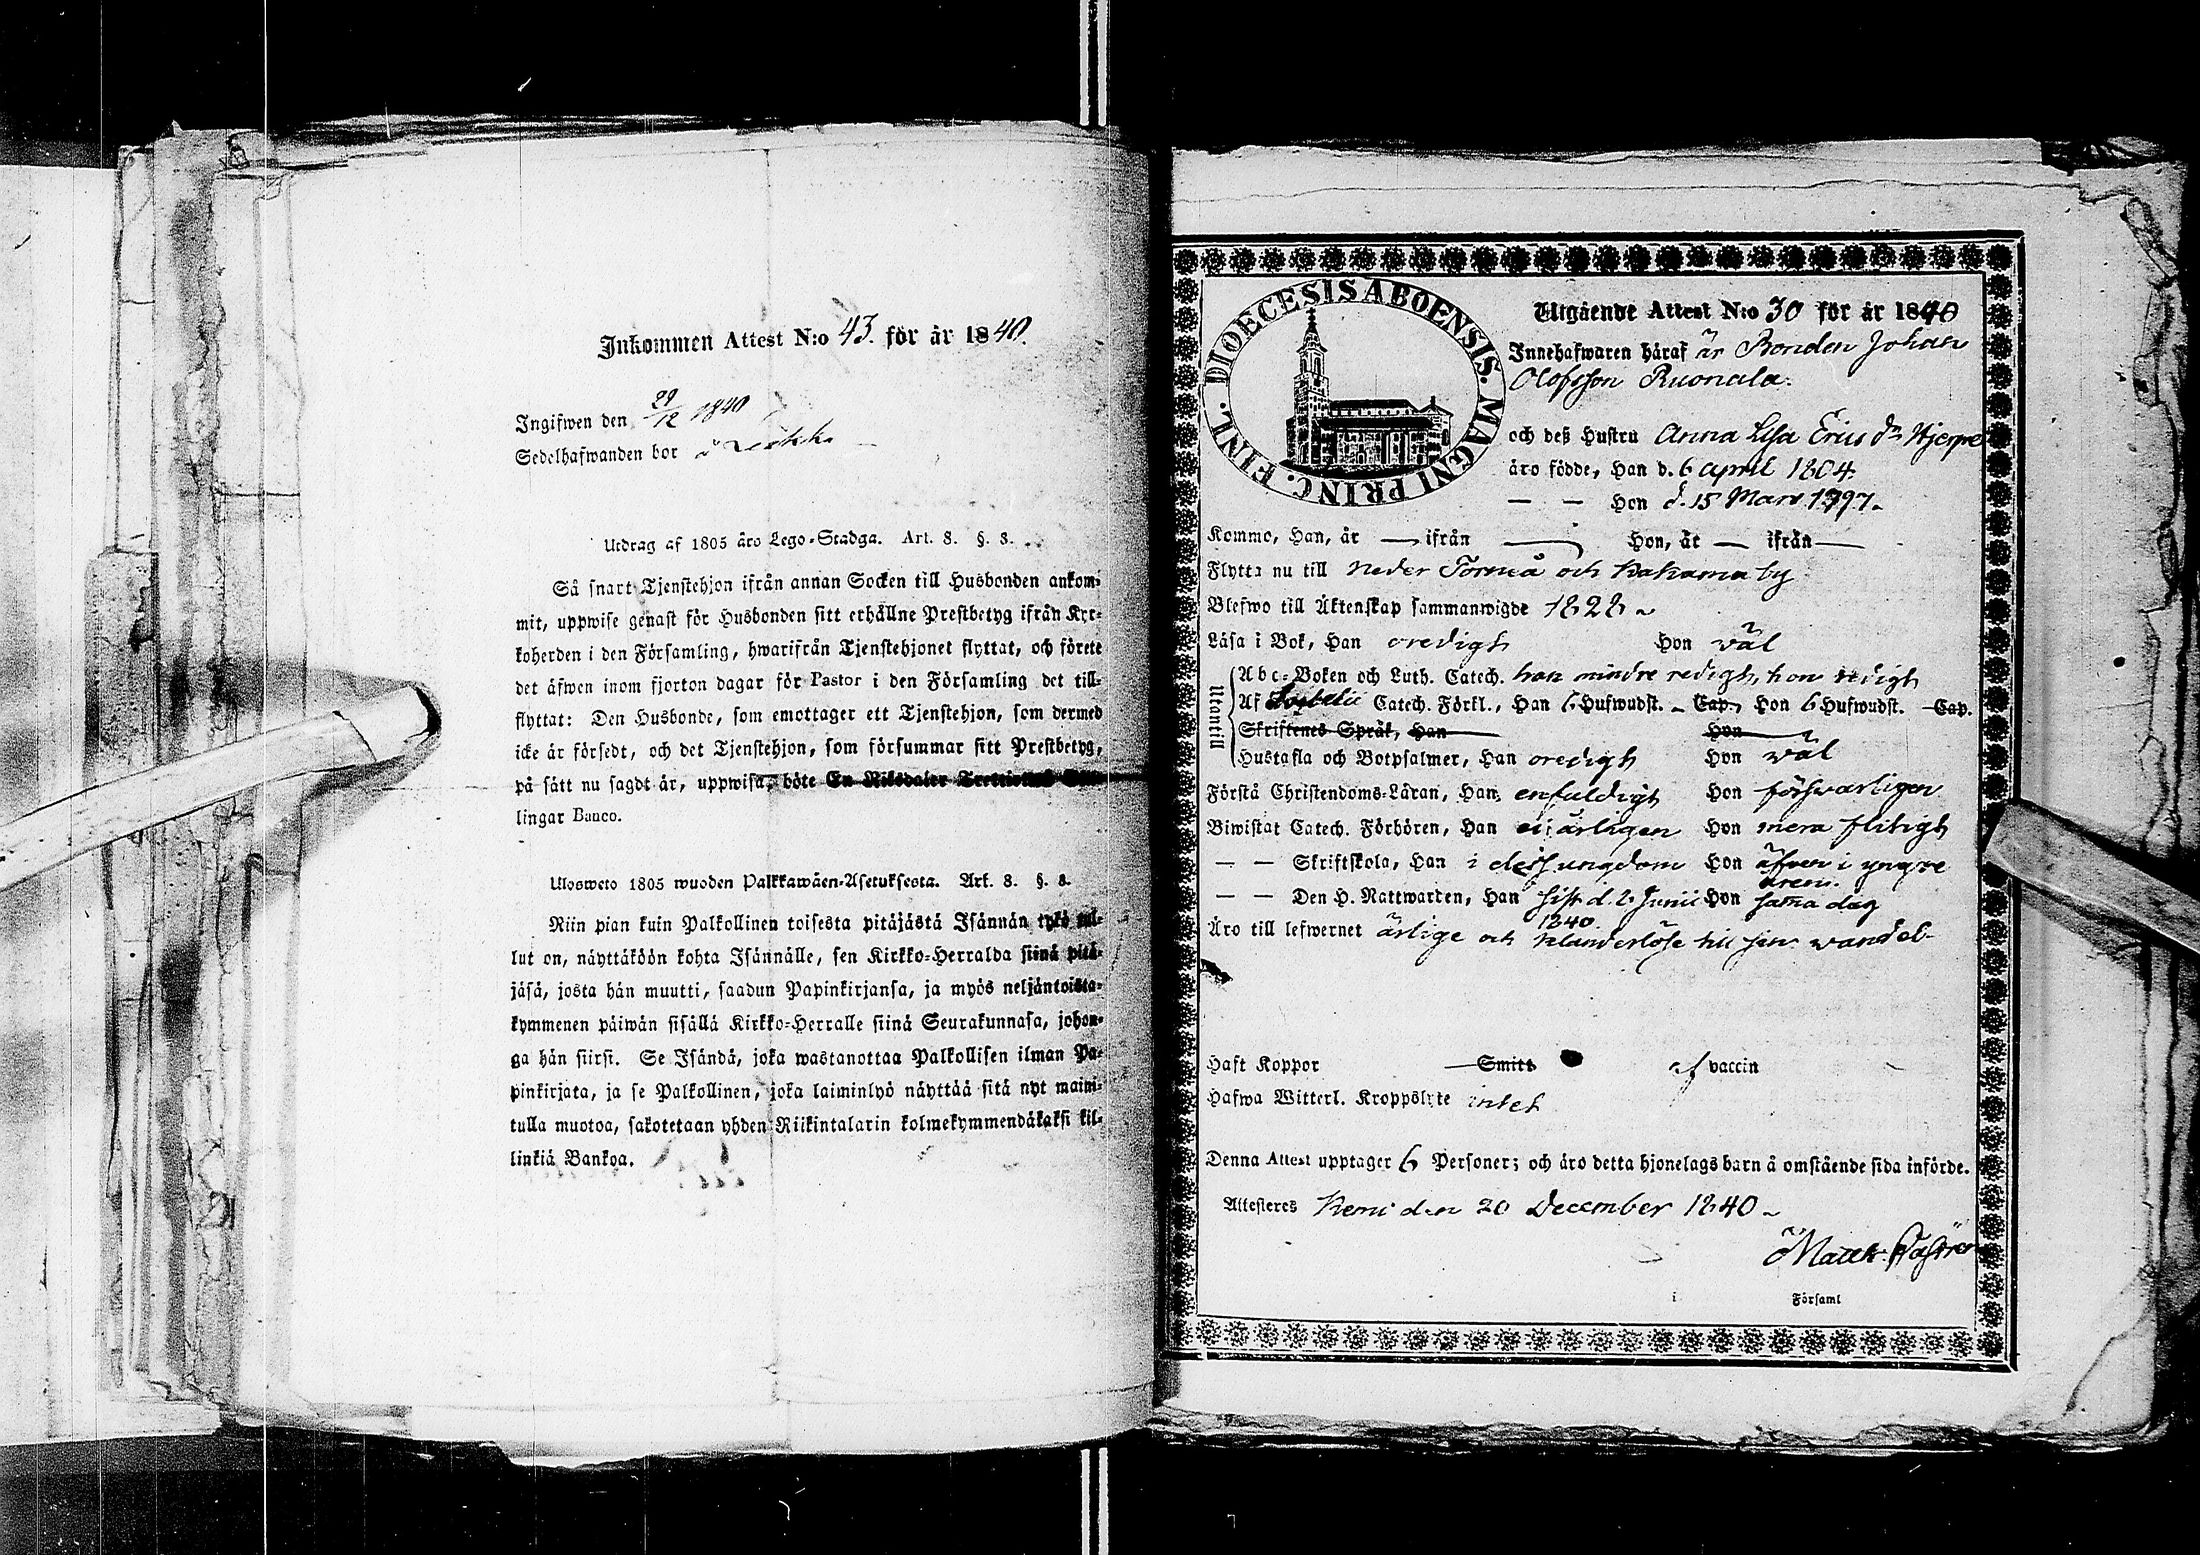 Inkommen Attest N:o 43. för år 1840.
Ingifwen den 29/12 1840
Sedelhafwanden bor å
Utdrag af 1805 års Lego-Stadga. Art. 8. §. 8.
Så snart Tjenstehjon ifrån annan Socken till Husbonden ankom-
mit, uppwise genast för Husbonden sitt erhållne Prestbetyg ifrån Kyr-
koherden i den Församling, hwarifrån Tjenstehjonet flyttat, och förete
det äfwen inom fjorton dagar för Pastor i den Församling det till-
flyttat: Den Husbonde, som emottager ett Tjenstehjon, som dermed
icke är försedt, och det Tjenstehjon, som försummar sitt Prestbetyg,
på sätt nu sagdt är, uppwisa, böte En Riksdaler
lingar Banco.
Ulosweto 1805 wuoden Palkkawäen-Asetuksesta. Art. 8. §. 8.
Niin pian kuin Palkollinen toisesta pitäjästä Isännän tykö tul-
lut on, näyttäköön kohta Isännälle, sen Kirkko-Herralda siinä pitä-
jäsä, josta hän muutti, saadun Papinkirjansa, ja myös neljäntoista-
kymmenen päiwän sisällä Kirkko-Herralle siinä Seurakunnasa, johon-
ga hän siirsi. Se Isändä, joka wastanottaa Palkollisen ilman Pa-
pinkirjata, ja se Palkollinen, joka laiminlyö näyttää sitä nyt maini-
tulla muotoa, sakotetaan yhden Riikintalarin kolmekymmendäkaksi kil-
linkiä Bankoa.
DIOECESIS ABOENSIS. MAGNI PRINC. FINL.
Utgående Attest N:o 30 för år 1840
Innehafwaren häraf är Bonden Johan
Olofsson Ruonala.
och deß Hustru Anna Lisa Ericsdr Hjerpe
äro födde, Han d. 6 April 1804.
— — Hon d. 15 Mars 1797.
Kommo, Han, år — ifrån — Hon, år — ifrån —
Flytta nu till Neder Torneå och Kakama by
Blefwo till Äktenskap sammanwigde 1828
Läsa i Bok, Han oredigt Hon väl
Utantill
Abc-Boken och Luth. Catech. han mindre redigt, hon redigt
Af Catech. Förkl., Han 6 Hufwudst. — Cap., Hon 6 Hufwudst. — Cap.
Skriftenes Språk, Han Hon
Hustafla och Botpsalmer, Han oredigt Hon väl
Förstå Christendoms-Läran, Han enfaldigt Hon försvarligen
Biwistat Catech. Förhören, Han ej årligen Hon mera flitigt
— — Skriftskola, Han i dess ungdom Hon äfven i yngre
åren.
— — Den H. Nattwarden, Han sist d. 2 Junii Hon samma dag
1840.
Äro till lefwernet ärlige och klanderlöse till sin vandel
Haft Koppor — Smitt af vaccin
Hafwa Witterl. Kroppslyte intet
Denna Attest upptager 6 Personer; och äro detta hjonelags barn å omstående sida införde.
Attesteres Kemi den 20 December 1840
i Församl